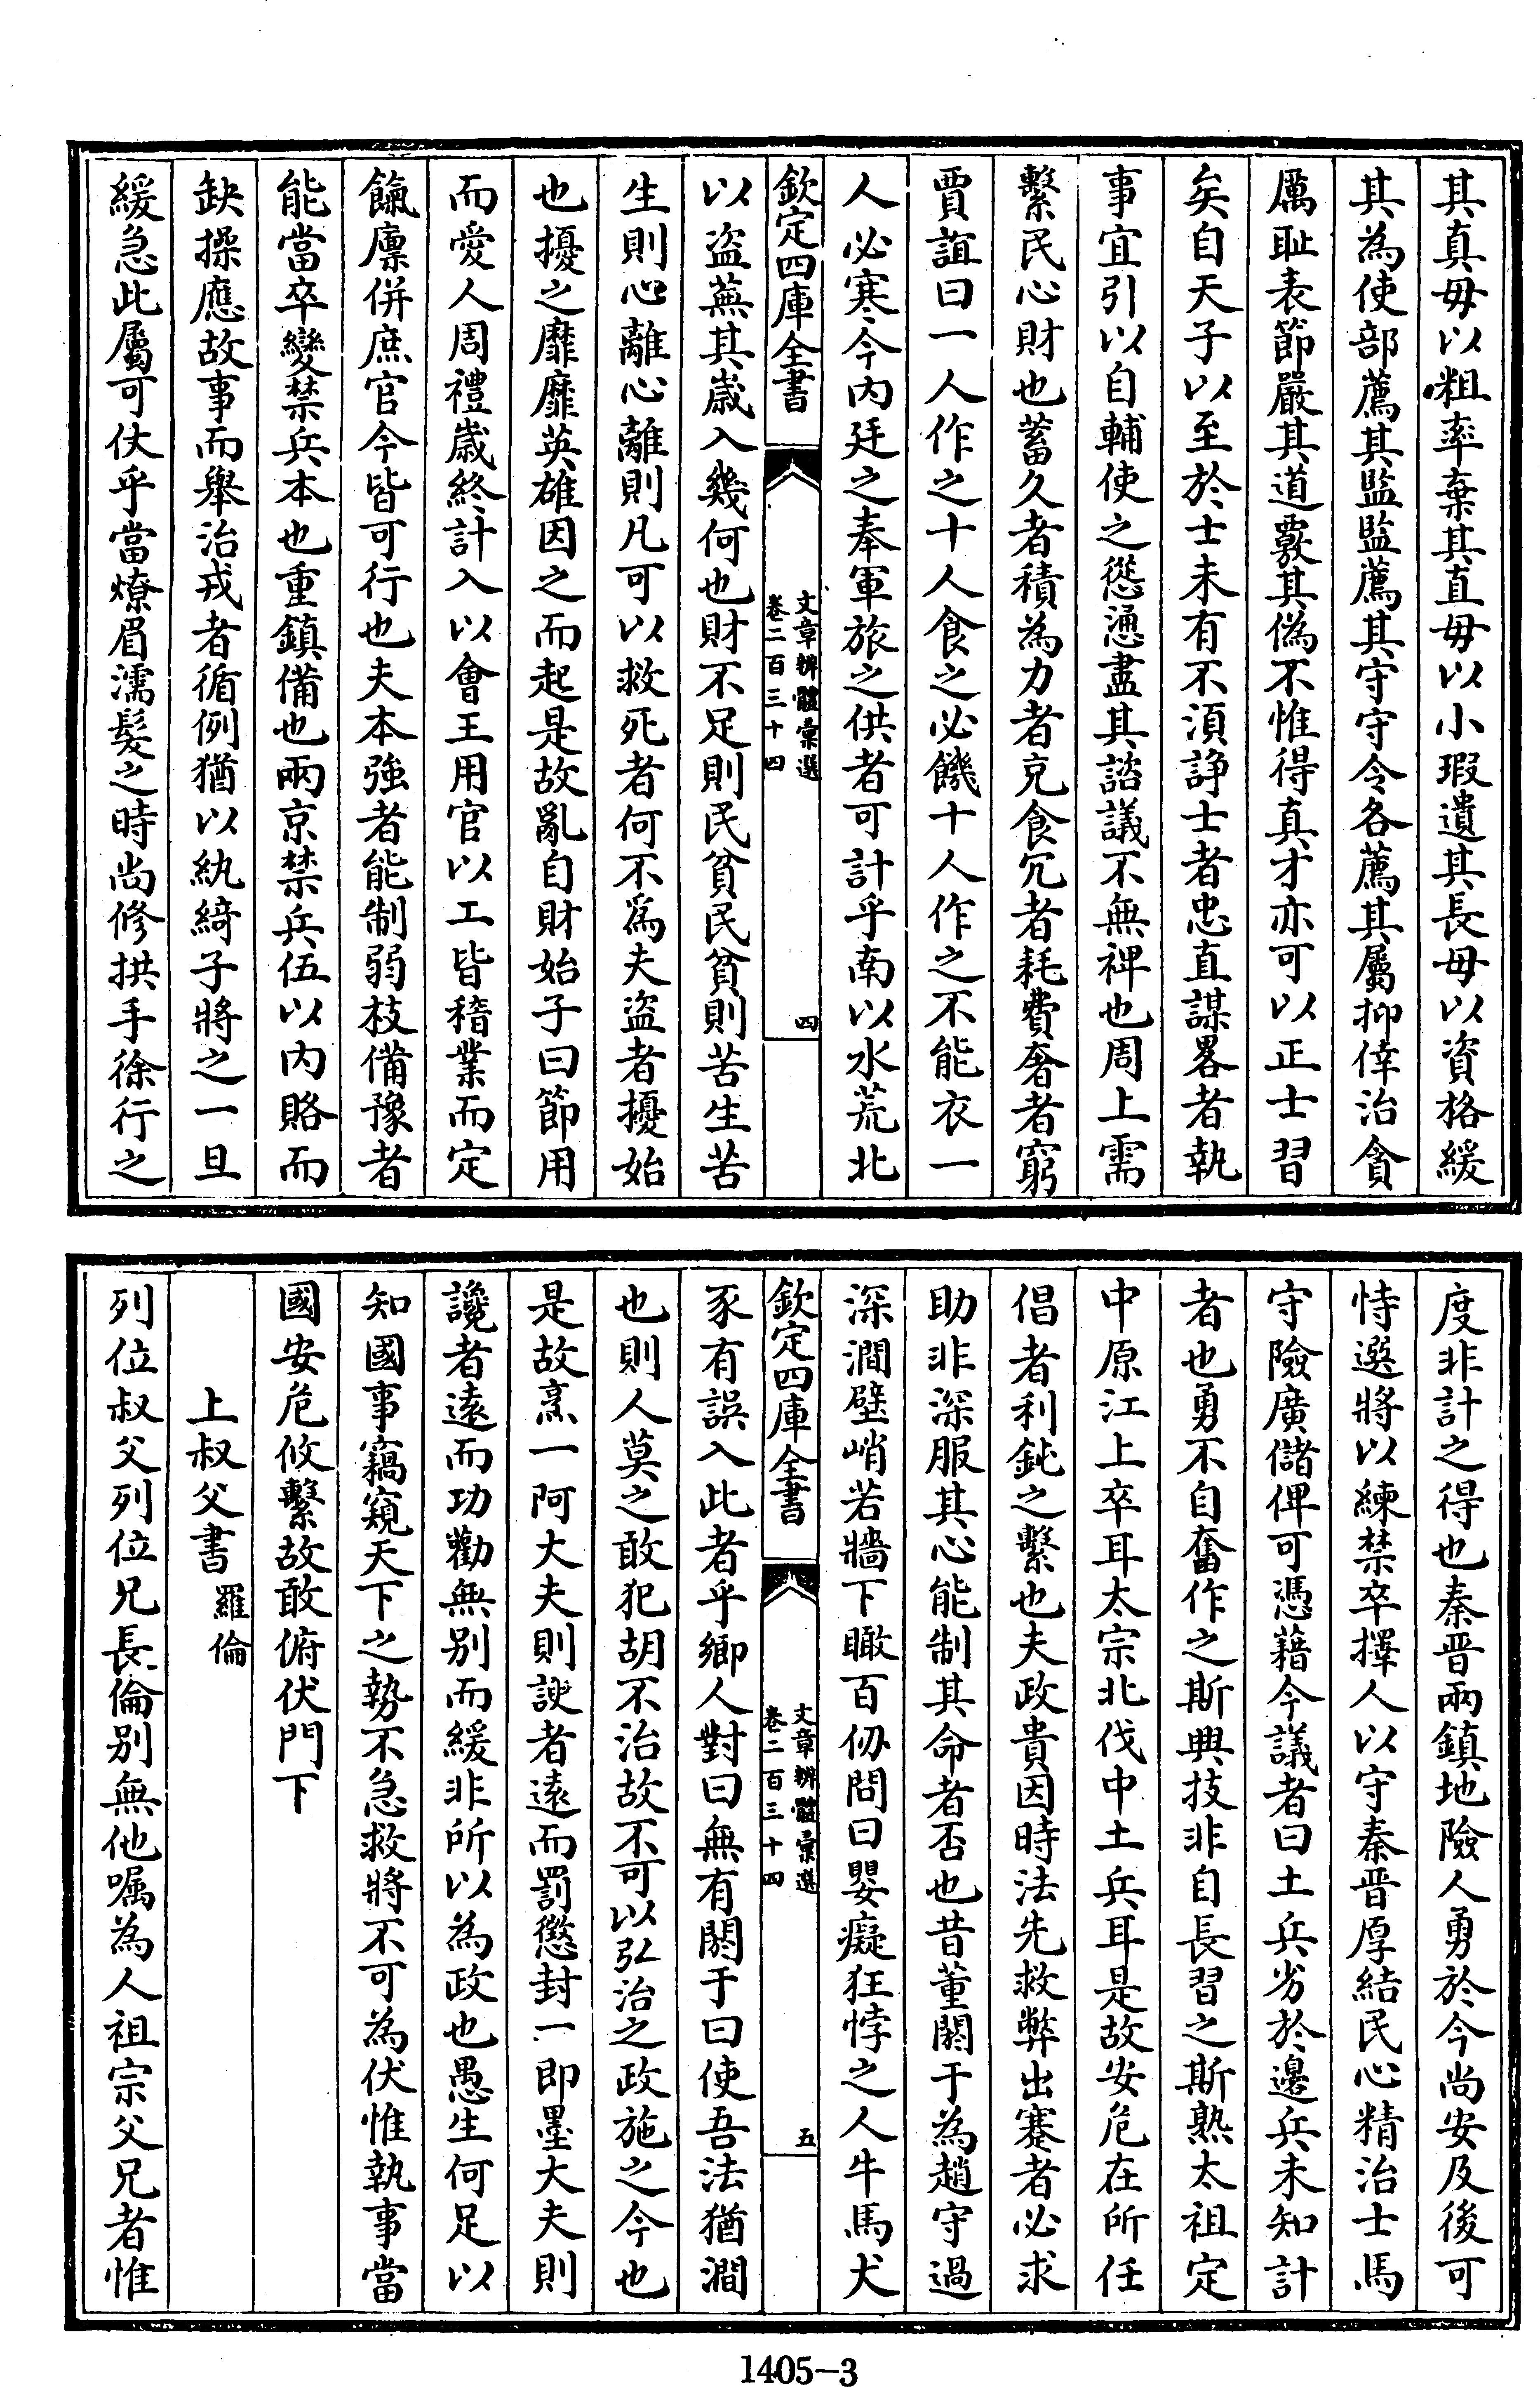 其真毋以粗率棄其直毋以小瑕遺其長毋以資格緩
其為使部薦其監監薦其守守令各薦其屬抑倖治貪
厲恥表節嚴其道覈其偽不惟得真才亦可以正士習
矣自天子以至於士未有不須諍士者忠直謀畧者執
事宜引以自輔使之慫慂盡其諮議不無裨也周上需
繫民心財也蓄久者積為力者克食冗者耗費奢者窮
賈誼曰一人作之十人食之必饑十人作之不能衣一
人必寒今內廷之奉軍旅之供者可計乎南以水荒北
欽定四庫全書
文章辨體彙選
卷二百三十四
四
以盜蕪其歲入幾何也財不足則民貧民貧則苦生苦
生則心離心離則凡可以救死者何不爲夫盜者擾始
也擾之靡靡英雄因之而起是故亂自財始子曰節用
而愛人周禮歲終計入以會王用官以工皆稽業而定
餼廩併庶官今皆可行也夫本強者能制弱枝備豫者
能當卒變禁兵本也重鎮備也兩京禁兵伍以內賂而
缺操應故事而舉治戎者循例猶以紈綺子將之一旦
緩急此屬可仗乎當燎眉濡髮之時尚修拱手徐行之
度非計之得也秦晋兩鎮地險人勇於今尚安及後可
恃選將以練禁卒擇人以守秦晋厚結民心精治士馬
守險廣儲俾可憑藉今議者曰土兵劣於邊兵未知計
者也勇不自奮作之斯興技非自長習之斯熟太祖定
中原江上卒耳太宗北伐中土兵耳是故安危在所任
倡者利鈍之繫也夫政貴因時法先救弊出蹇者必求
助非深服其心能制其命者否也昔董閼于為趙守過
深澗壁峭若牆下瞰百仞問曰嬰癡狂悖之人牛馬犬
欽定四庫全書
文章辨體彙選
卷二百三十四
五
豕有誤入此者乎鄉人對曰無有閼于曰使吾法猶澗
也則人莫之敢犯胡不治故不可以弘治之政施之今也
是故烹一阿大夫則諛者遠而罰懲封一即墨大夫則
讒者遠而功勸無別而緩非所以為政也愚生何足以
知國事竊窺天下之勢不急救將不可為伏惟執事當
國安危攸繫故敢俯伏門下
上叔父書　羅倫
列位叔父列位兄長倫別無他囑為人祖宗父兄者惟
1405-3